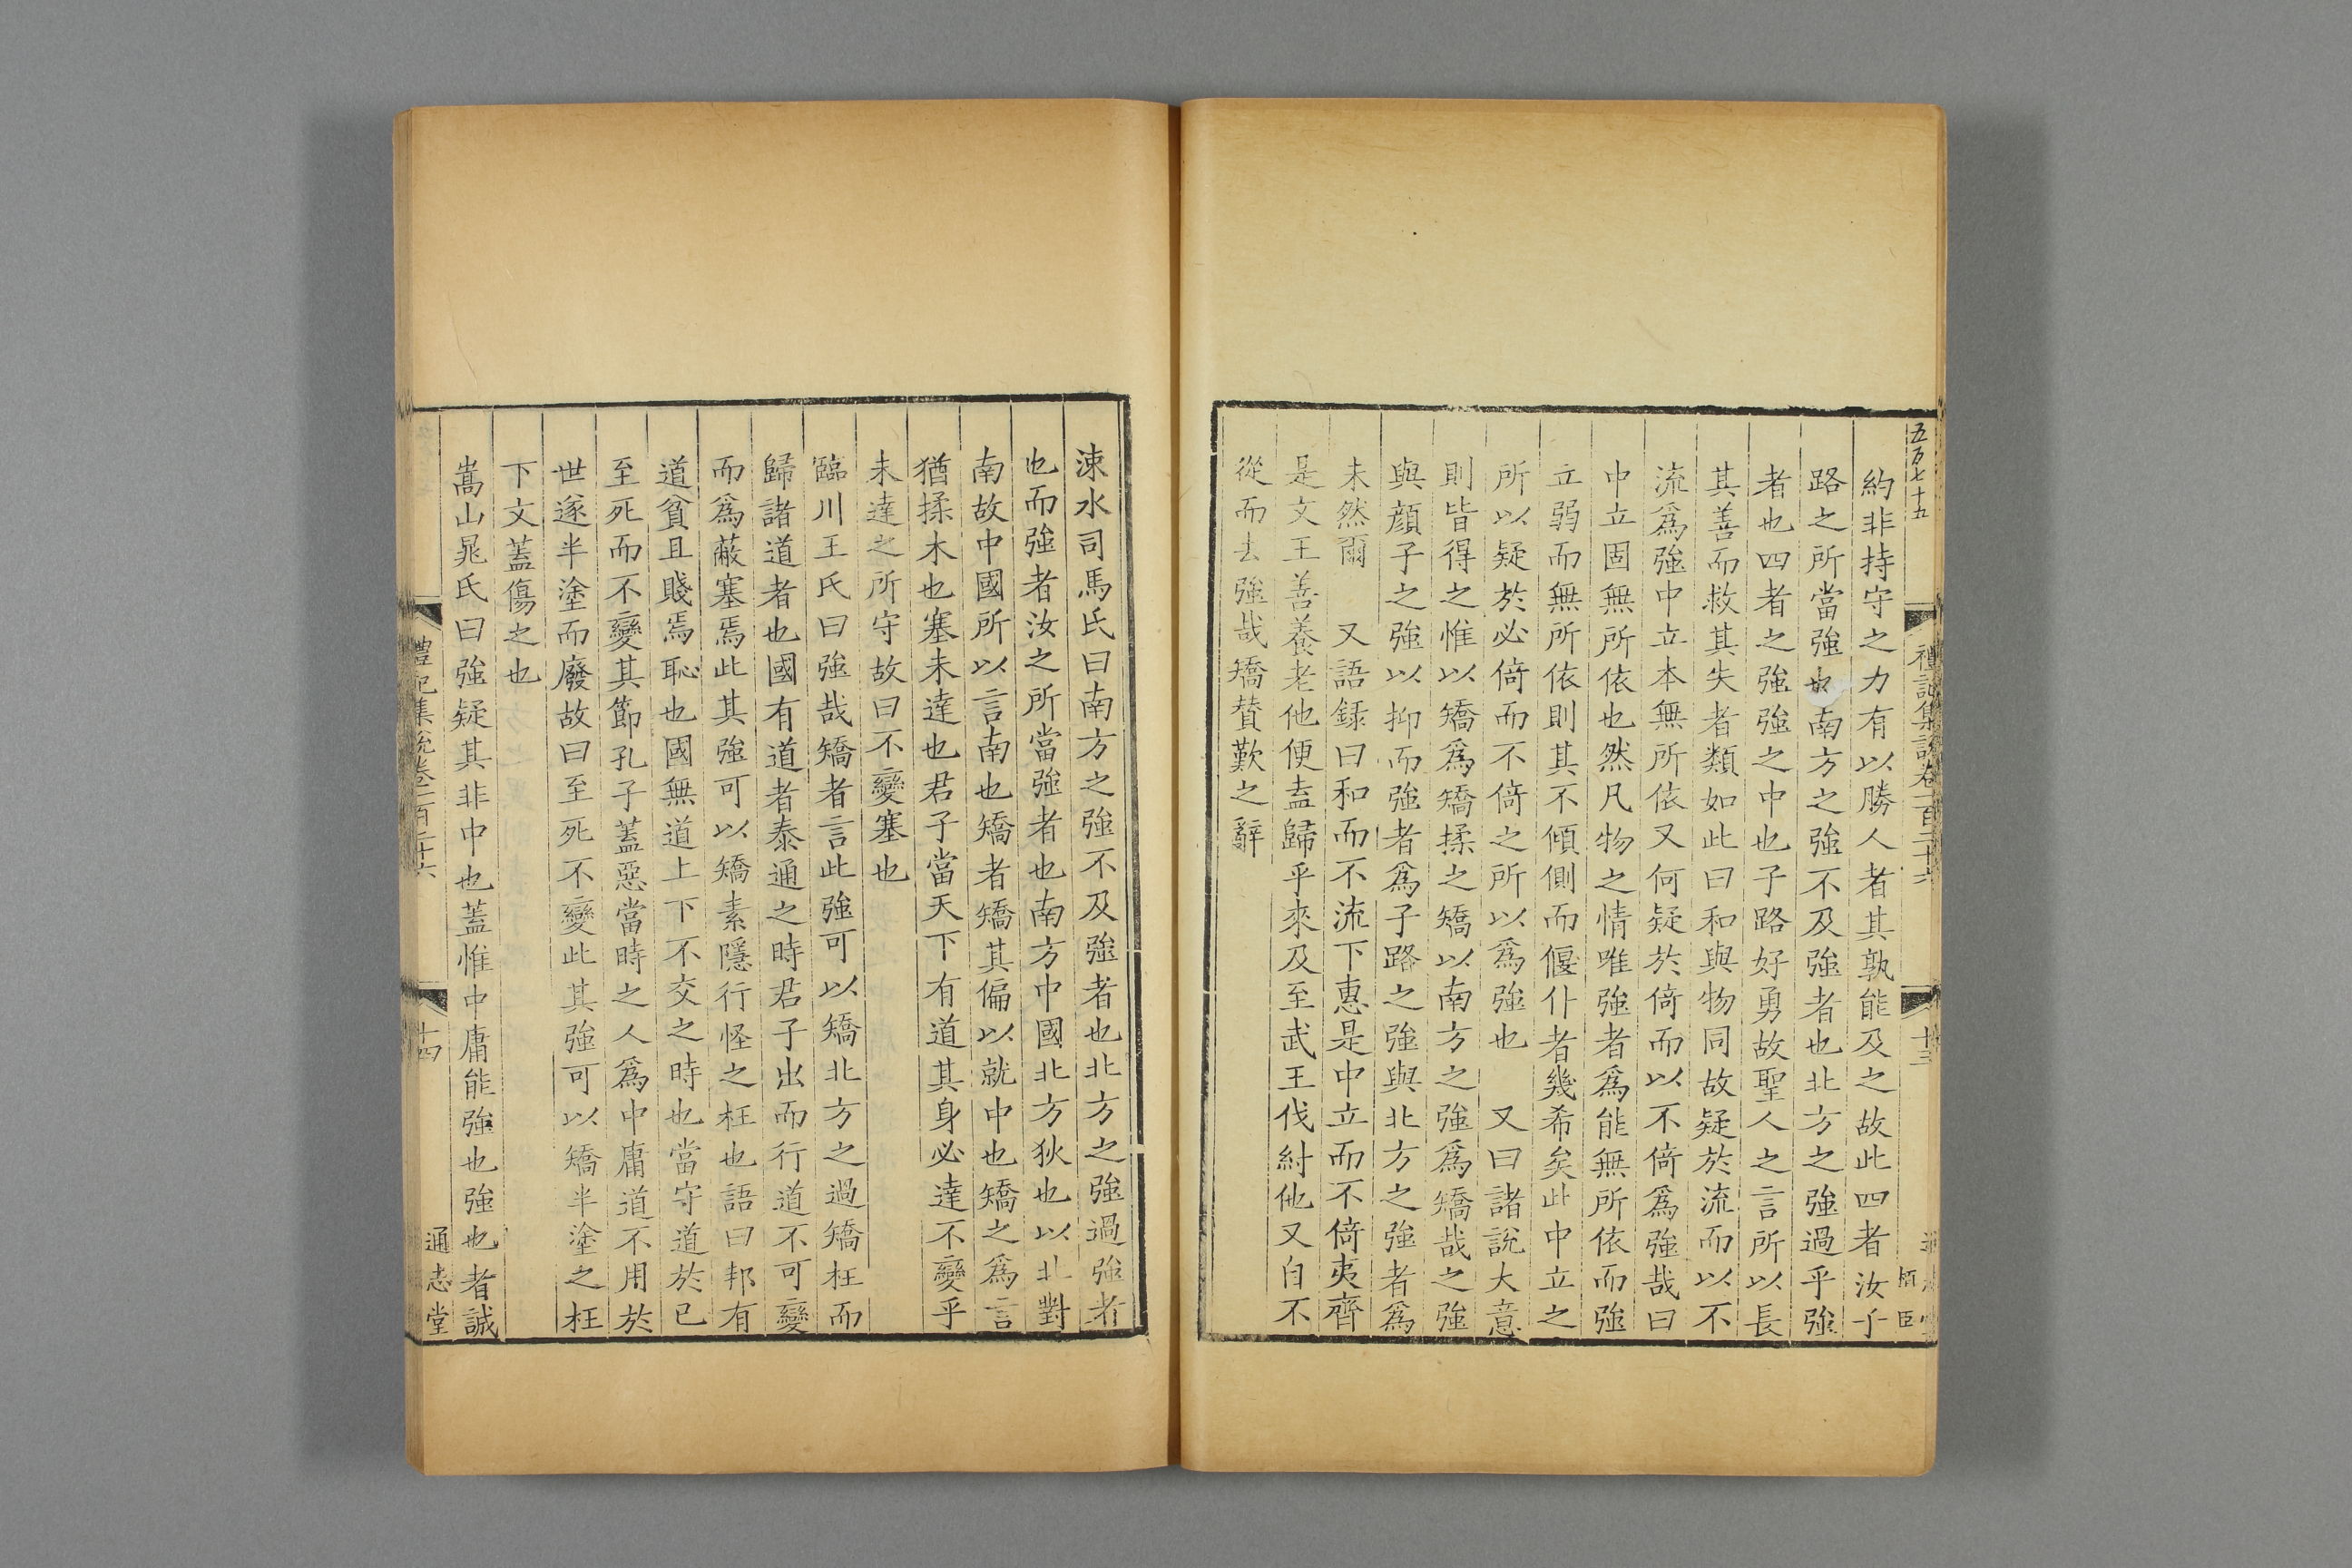 五百七十五
禮記集說卷一百二十六
十三
栢臣
約非持守之力有以勝人者其孰能及之故此四者汝子
路之所當強也南方之強不及強者也北方之強過乎強
者也四者之強強之中也子路好勇故聖人之言所以長
其善而救其失者類如此曰和與物同故疑於流而以不
流爲強中立本無所依又何疑於倚而以不倚爲強哉曰
中立固無所依也然凡物之情唯強者爲能無所依而強
立弱而無所依則其不傾側而偃仆者幾希矣此中立之
所以疑於必倚而不倚之所以爲強也　又曰諸說大意
則皆得之惟以矯爲矯揉之矯以南方之強爲矯哉之強
與顔子之強以抑而強者爲子路之強與北方之強者爲
未然爾　又語錄曰和而不流下惠是中立而不倚夷齊
是文王善養老他便盍歸乎來及至武王伐紂他又自不
從而去強哉矯贊歎之辭
涑水司馬氏曰南方之強不及強者也北方之強過強者
也而強者汝之所當強者也南方中國北方狄也以北對
南故中國所以言南也矯者矯其偏以就中也矯之爲言
猶揉木也塞未達也君子當天下有道其身必達不變乎
未達之所守故曰不變塞也
臨川王氏曰強哉矯者言此強可以矯北方之過矯枉而
歸諸道者也國有道者泰通之時君子出而行道不可變
而爲蔽塞焉此其強可以矯素隱行怪之枉也語曰邦有
道貧且賤焉恥也國無道上下不交之時也當守道於已
至死而不變其節孔子蓋惡當時之人爲中庸道不用於
世遂半塗而廢故曰至死不變此其強可以矯半塗之枉
下文蓋傷之也
嵩山晁氏曰強疑其非中也蓋惟中庸能強也強也者誠
禮記集說卷一百二十六
十四
通志堂